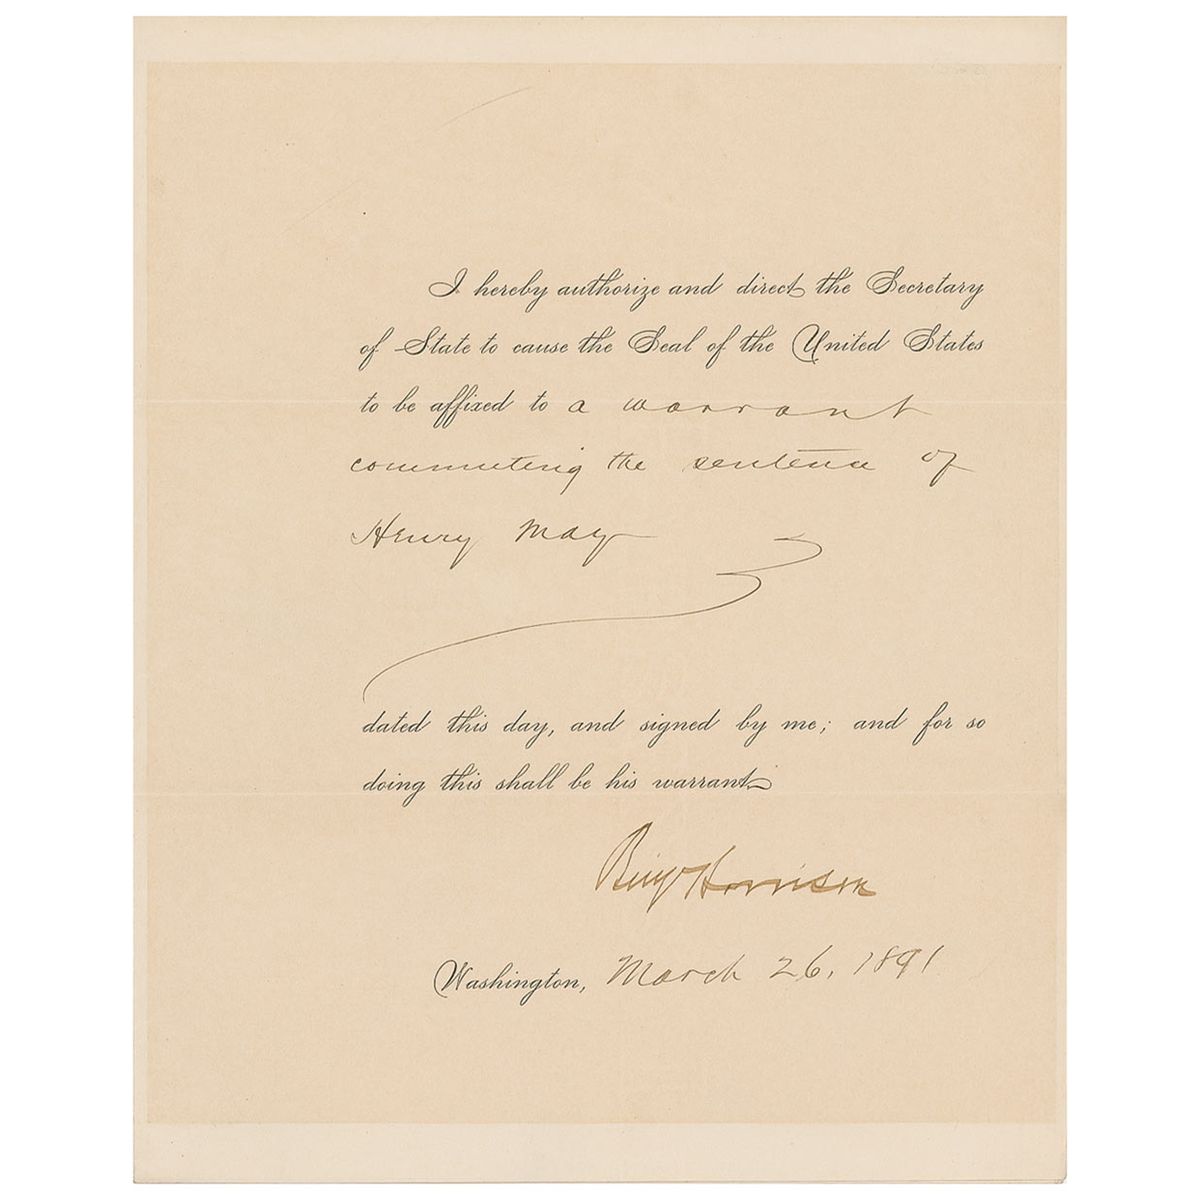 I hereby authorize and direct the Secretary
of State to cause the Seal of the United States
to be affixed to a warrant
commuting the sentence of
Henry May
dated this day, and signed by me; and for so
doing this shall be his warrant.
Benj Harrison
Washington, March 26, 1891